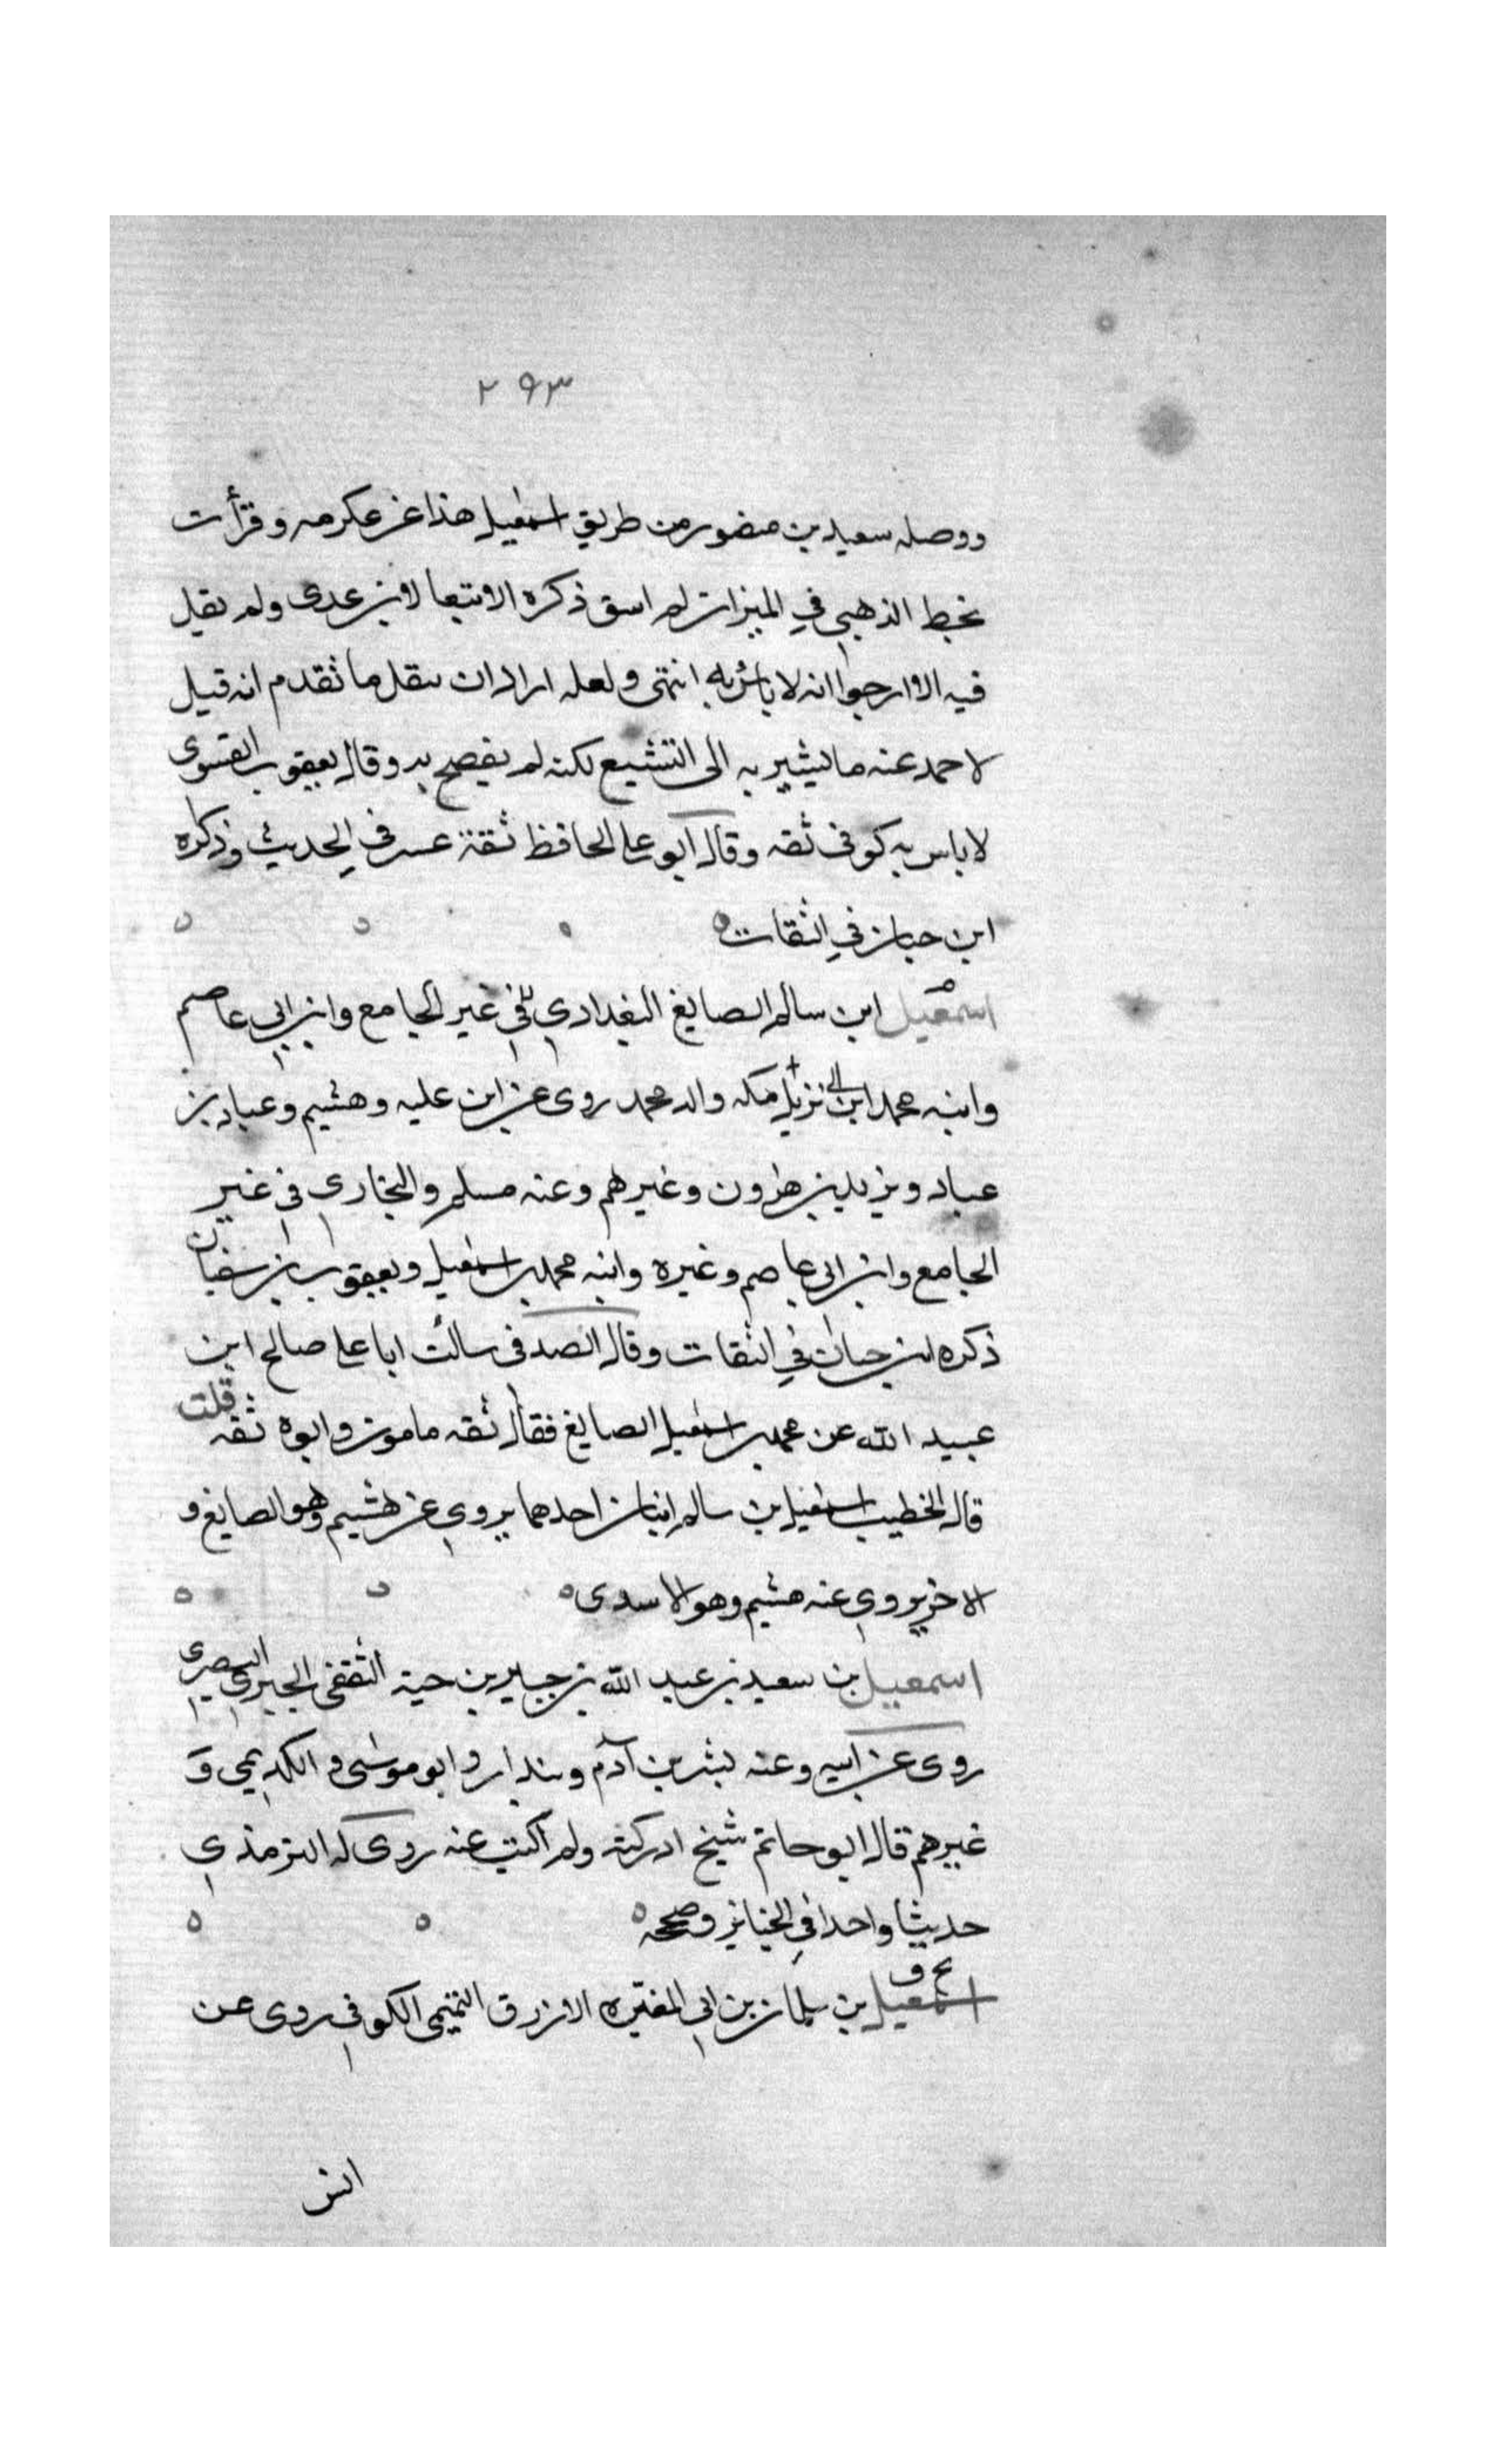 ٢٩٣
ووصله سعيد بن منصور من طريق اسمعيل هذا عن عكرمه وقرأت
بخط الذهبي في الميزان لم اسق ذكره الا تبعا لابن عدى ولم يقل
فيه الا ارجوا انه لا بأس به انتهى ولعله اراد ان ينقل ما تقدم انه قيل
لاحمد عنه ما يشير به الى التشيع لكنه لم يفصح به وقال يعقوب الفسوى
لا باس به كوفى ثقه وقال ابو على الحافظ ثقة عسر في الحديث وذكره
ابن حبان في الثقات
اسمعيل ابن سالم الصايغ البغدادي في غير الجامع وابن ابي عاصم
وابنه محمد ابن نزيل مكه والد محمد روى عن ابن عليه وهشيم وعباد بن
عباد ويزيد بن هرون وغيرهم وعنه مسلم والبخارى فى غير
الجامع وابن ابى عاصم وغيره وابنه محمد بن اسمعيل ويعقوب بن سفيان
ذكره ابن حبان في الثقات وقال الصدفى سالت ابا على صالح ابن
عبيد الله عن محمد بن اسمعيل الصايغ فقال ثقه مامون وابوه ثقه قلت
قال الخطيب اسمعيل بن سالم اثنان احدهما يروي عن هشيم وهو الصايغ و
الاخر يروي عنه هشيم وهو الاسدى
اسمعيل بن سعيد بن عبيد الله بن جبير بن حية الثقفى الجبيرى البصرى
روى عن ابيه وعنه بشر بن آدم وبندار وابو موسى والكديمي و
غيرهم قال ابو حاتم شيخ ادركته ولم اكتب عنه روى له الترمذي
حديثا واحدا في الجنايز وصححه
بخ ق
اسمعيل بن سلمان بن ابى المغيره الازرق التميمى الكوفى روى عن
انس